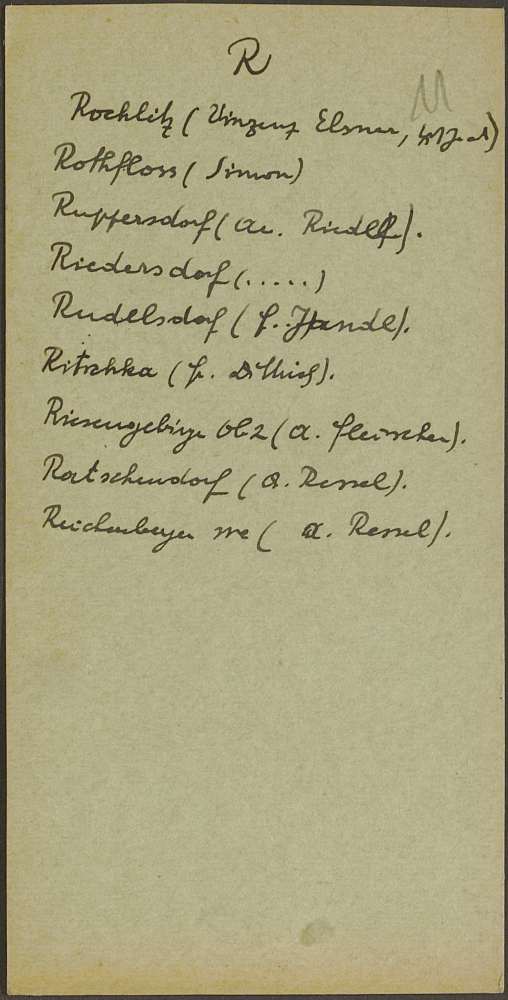 R
Rochlitz (Vinzenz Elsner,
Rothfloss (Simon)
Ruppersdorf (Au. Riedel).
Riedersdorf (.....)
Rudelsdorf (f. Handl).
Ritschka (fr. Dittrich).
Riesengebirge Ob2 (A. fleischer).
Ratschendorf (A. Ressel).
Reichenberger (A. Ressel).